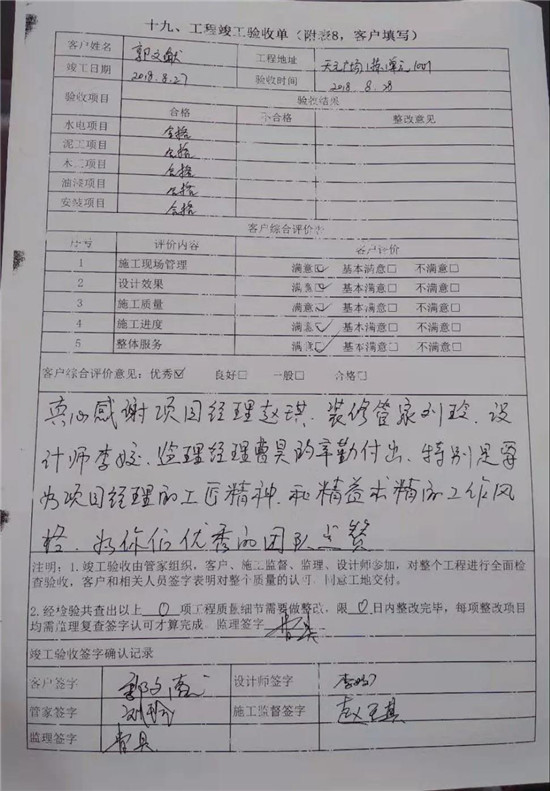 十九、工程竣工验收单（附表8，客户填写）
客户姓名 郭文献 工程地址 天元广场1栋1单元1001
竣工日期 2018.8.27 验收时间 2018.8.28
验收项目 验收结果
合格 不合格 整改意见
水电项目 合格
泥工项目 合格
木工项目 合格
油漆项目 合格
安装项目 合格
客户综合评价表
序号 评价内容 客户评价
1 施工现场管理 满意☑ 基本满意□ 不满意□
2 设计效果 满意☑ 基本满意□ 不满意□
3 施工质量 满意☑ 基本满意□ 不满意□
4 施工进度 满意☑ 基本满意□ 不满意□
5 整体服务 满意☑ 基本满意□ 不满意□
客户综合评价意见：优秀☑ 良好□ 一般□ 合格□
真心感谢项目经理赵琪、装修管家刘玲、设
计师李姣、监理经理曹昊的辛勤付出、特别是要
为项目经理的工匠精神、和精益求精的工作风
格、为你们优秀的团队点赞
注明：1.竣工验收由管家组织，客户、施工监督、监理、设计师参加，对整个工程进行全面检
查验收，客户和相关人员签字表明对整个质量的认可，同意工地交付。
2.经检验共查出以上 0 项工程质量细节需要做整改，限 0 日内整改完毕，每项整改项目
均需监理复查签字认可才算完成。监理签字 曹昊
竣工验收签字确认记录
客户签字 郭文献 设计师签字 李姣
管家签字 刘玲 施工监督签字 赵琪
监理签字 曹昊